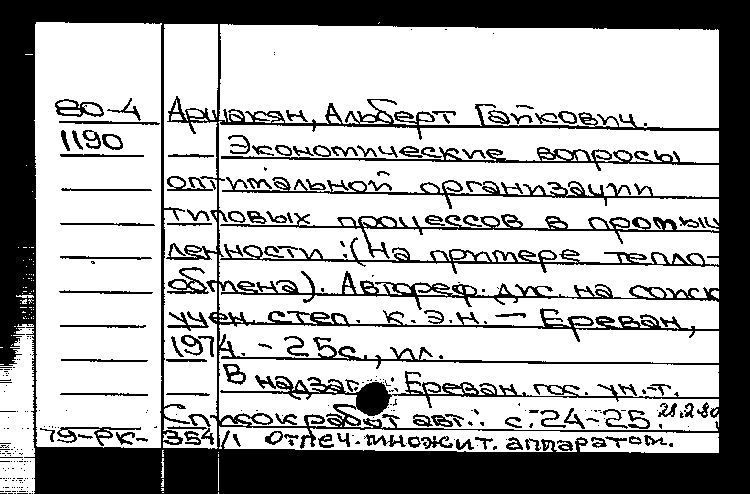 80-4 Аршакян, Альберт Гайкович.
1190 Экономические вопросы
оптимальной организации
типовых процессов в промыш
ленности : (На примере тепло-
обмена). Автореф. дис. на соиск
учен. степ. к.э.н. — Ереван,
1974. - 25с., ил.
В надзаг.: Ереван. гос. ун-т.
Список работ авт.: с. 24-25. 28.2.80
79-РК- 354/1 Отпеч. множит. аппаратом.